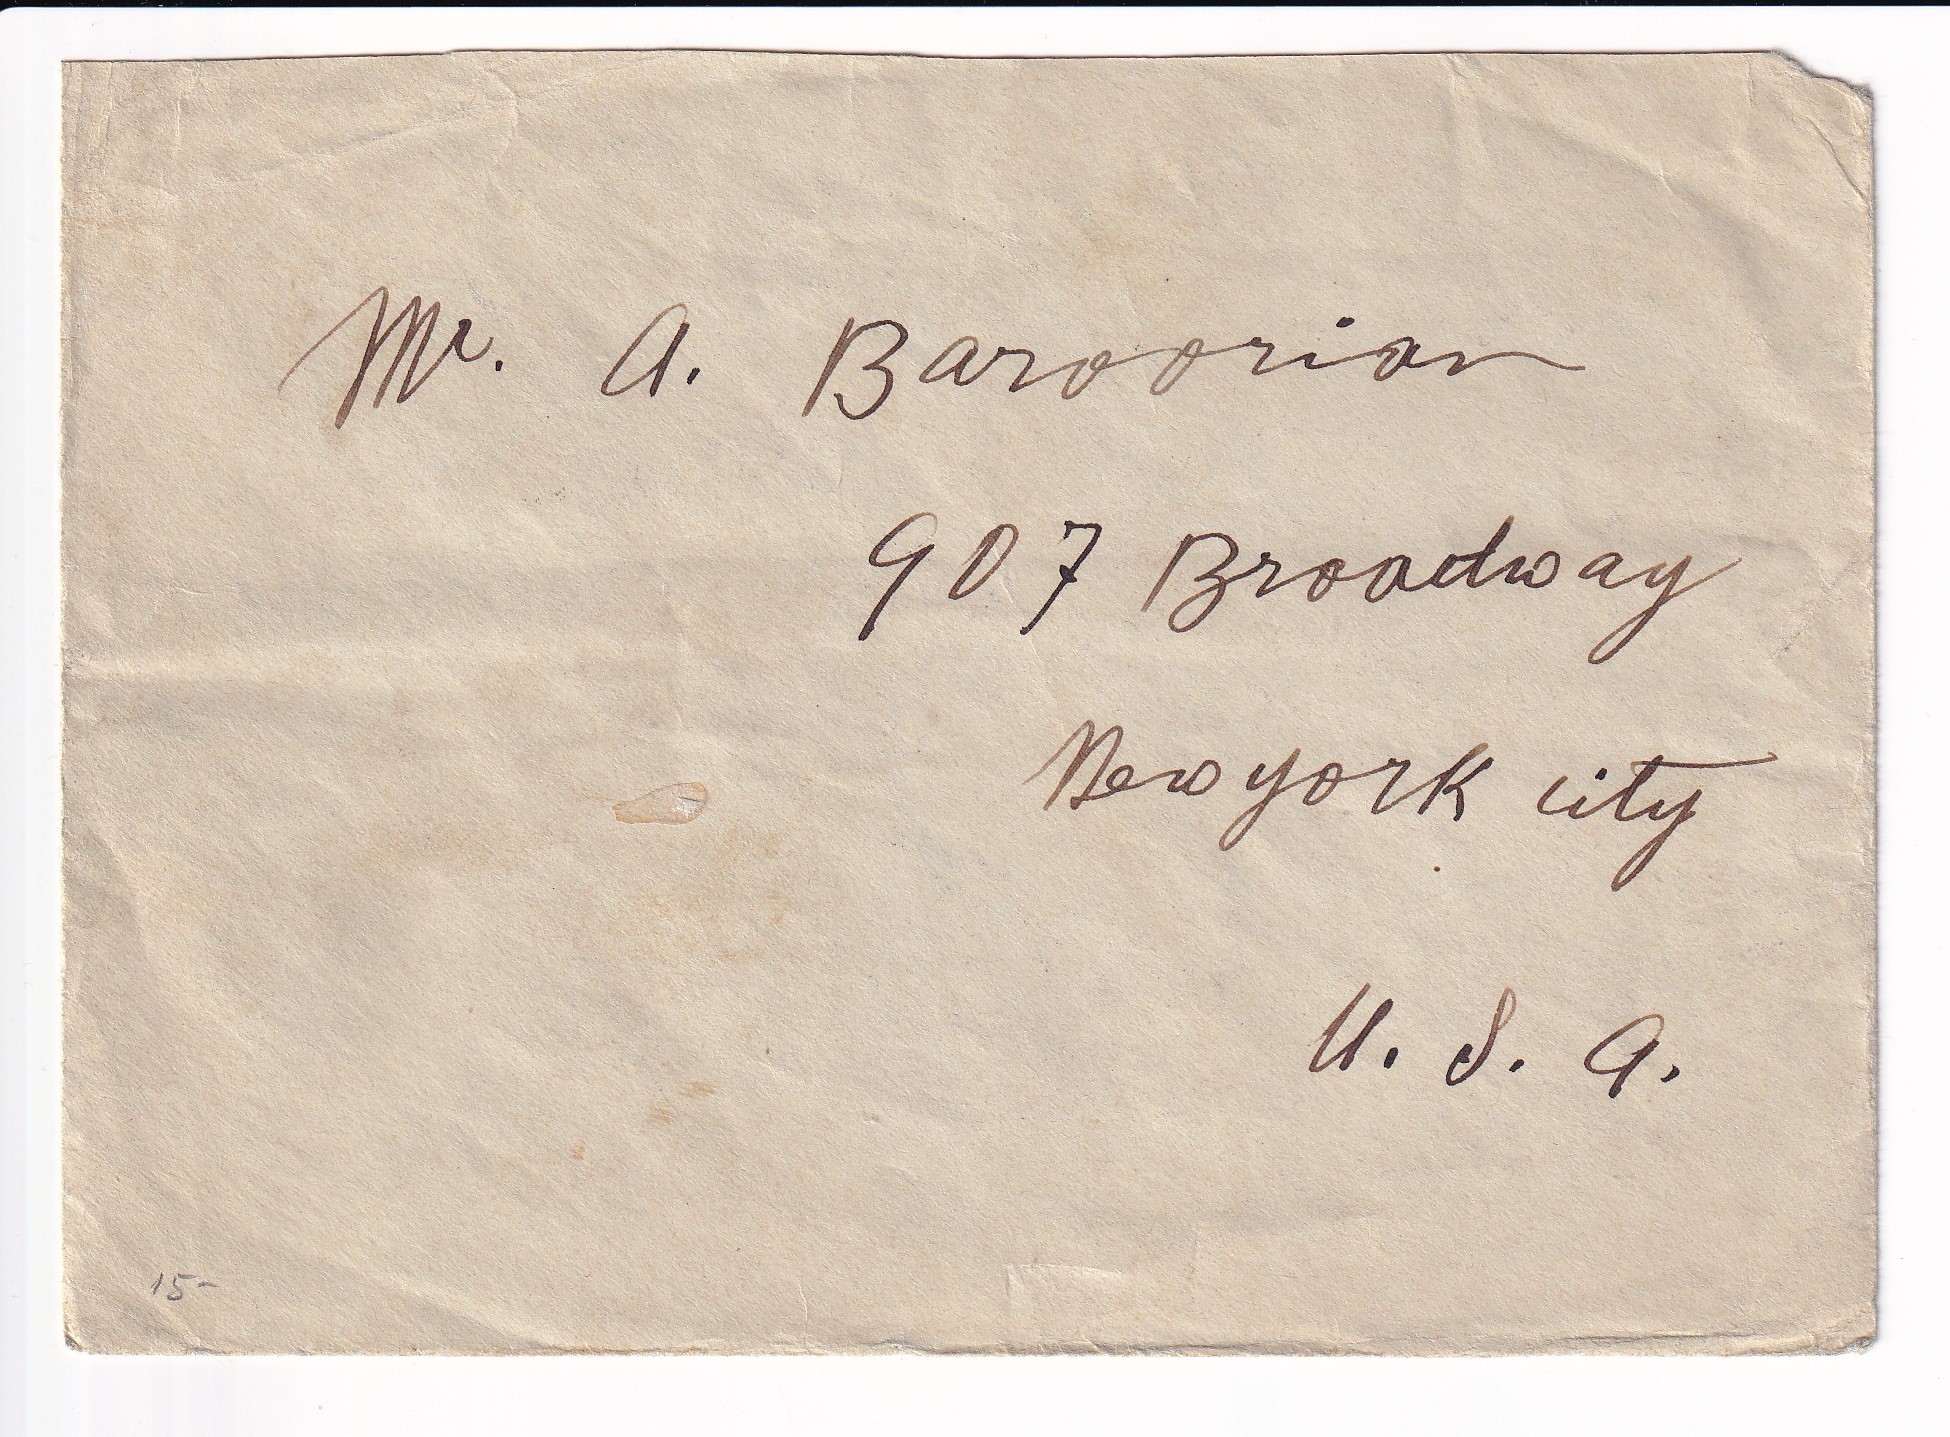 Mr. A. Baroorian
907 Broadway
New york city
U. S. A.
15-